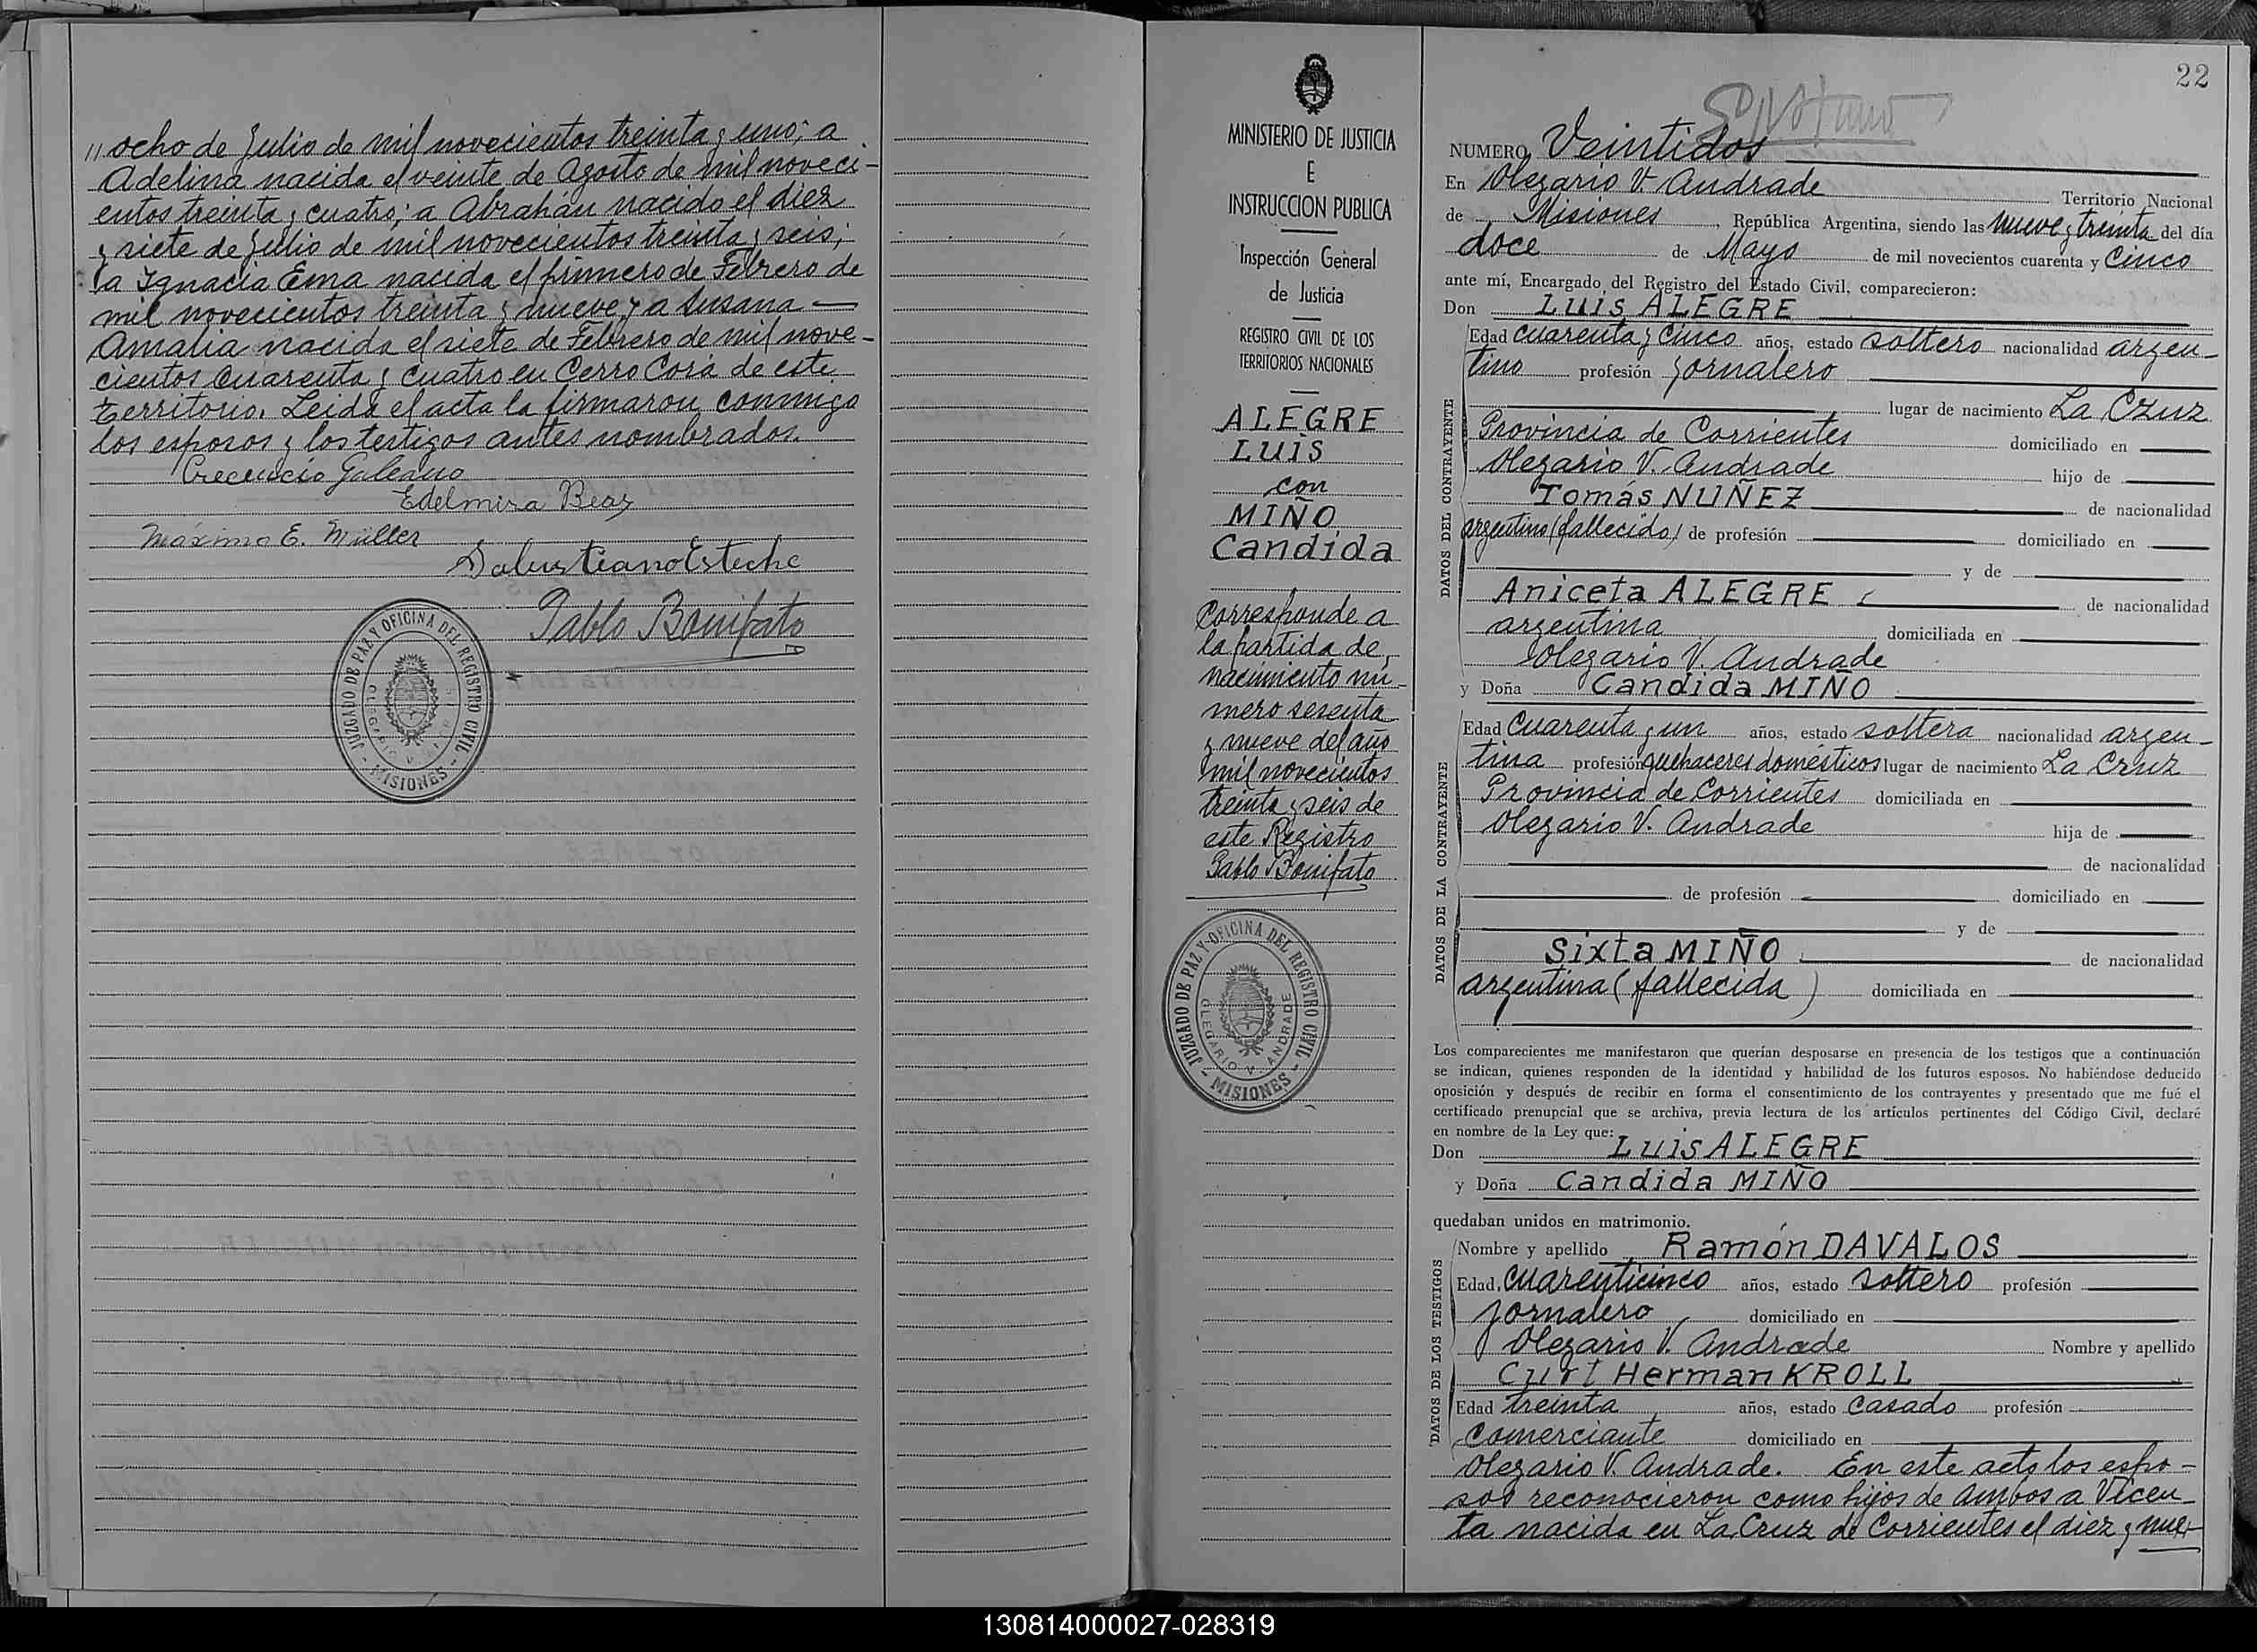 " ocho de Julio de mil novecientos treinta y uno; a
Adelina nacida el veinte de Agosto de mil noveci-
entos treinta y cuatro; a Abrahán nacido el diez
y siete de Julio de mil novecientos treinta y seis;
a Ignacia Ema nacida el primero de Febrero de
mil novecientos treinta y nueve y a Susana —
Amalia nacida el siete de Febrero de mil nove-
cientos cuarenta y cuatro en Cerro Corá de este
territorio. Leida el acta la firmaron conmigo
los esposos y los testigos antes nombrados.
Crecencio Galeano
Edelmira Beaz
Máximo E. Müller
Salustiano Esteche
Pablo Bonifato
JUZGADO DE PAZ Y OFICINA DEL REGISTRO CIVIL
OLEGARIO V.
- MISIONES -
MINISTERIO DE JUSTICIA
E
INSTRUCCION PUBLICA
Inspección General
de Justicia
REGISTRO CIVIL DE LOS
TERRITORIOS NACIONALES
ALEGRE
LUIS
con
MIÑO
Candida
Corresponde a
la partida de
nacimiento nú-
mero sesenta
y nueve del año
mil novecientos
treinta y seis de
este Registro
Pablo Bonifato
JUZGADO DE PAZ Y OFICINA DEL REGISTRO CIVIL
OLEGARIO V. ANDRADE
- MISIONES -
22
NUMERO Veintidos
En Olegario V. Andrade Territorio Nacional
de Misiones, República Argentina, siendo las nueve y treinta del día
doce de Mayo de mil novecientos cuarenta y Cinco
ante mí, Encargado del Registro del Estado Civil, comparecieron:
Don LUIS ALEGRE
DATOS DEL CONTRAYENTE
Edad cuarenta y cinco años, estado soltero nacionalidad argen-
tino profesión jornalero
lugar de nacimiento La Cruz
Provincia de Corrientes domiciliado en
Olegario V. Andrade hijo de
Tomás NUÑEZ de nacionalidad
argentino (fallecido) de profesión domiciliado en
y de
Aniceta ALEGRE de nacionalidad
argentina domiciliada en
Olegario V. Andrade
y Doña Candida MIÑO
DATOS DE LA CONTRAYENTE
Edad Cuarenta y un años, estado soltera nacionalidad argen-
tina profesión quehaceres domésticos lugar de nacimiento La Cruz
Provincia de Corrientes domiciliada en
Olegario V. Andrade hija de
de nacionalidad
de profesión domiciliado en
y de
Sixta MIÑO de nacionalidad
argentina (fallecida) domiciliada en
Los comparecientes me manifestaron que querían desposarse en presencia de los testigos que a continuación
se indican, quienes responden de la identidad y habilidad de los futuros esposos. No habiéndose deducido
oposición y después de recibir en forma el consentimiento de los contrayentes y presentado que me fué el
certificado prenupcial que se archiva, previa lectura de los artículos pertinentes del Código Civil, declaré
en nombre de la Ley que:
Don LUIS ALEGRE
y Doña Candida MIÑO
quedaban unidos en matrimonio.
DATOS DE LOS TESTIGOS
Nombre y apellido Ramón DAVALOS
Edad, cuarenticinco años, estado soltero profesión
jornalero domiciliado en
Olegario V. Andrade Nombre y apellido
Curt Herman KROLL
Edad treinta años, estado casado profesión
comerciante domiciliado en
Olegario V. Andrade. En este acto los espo-
sos reconocieron como hijos de ambos a Vicen-
ta nacida en La Cruz de Corrientes el diez y nue-
130814000027-028319